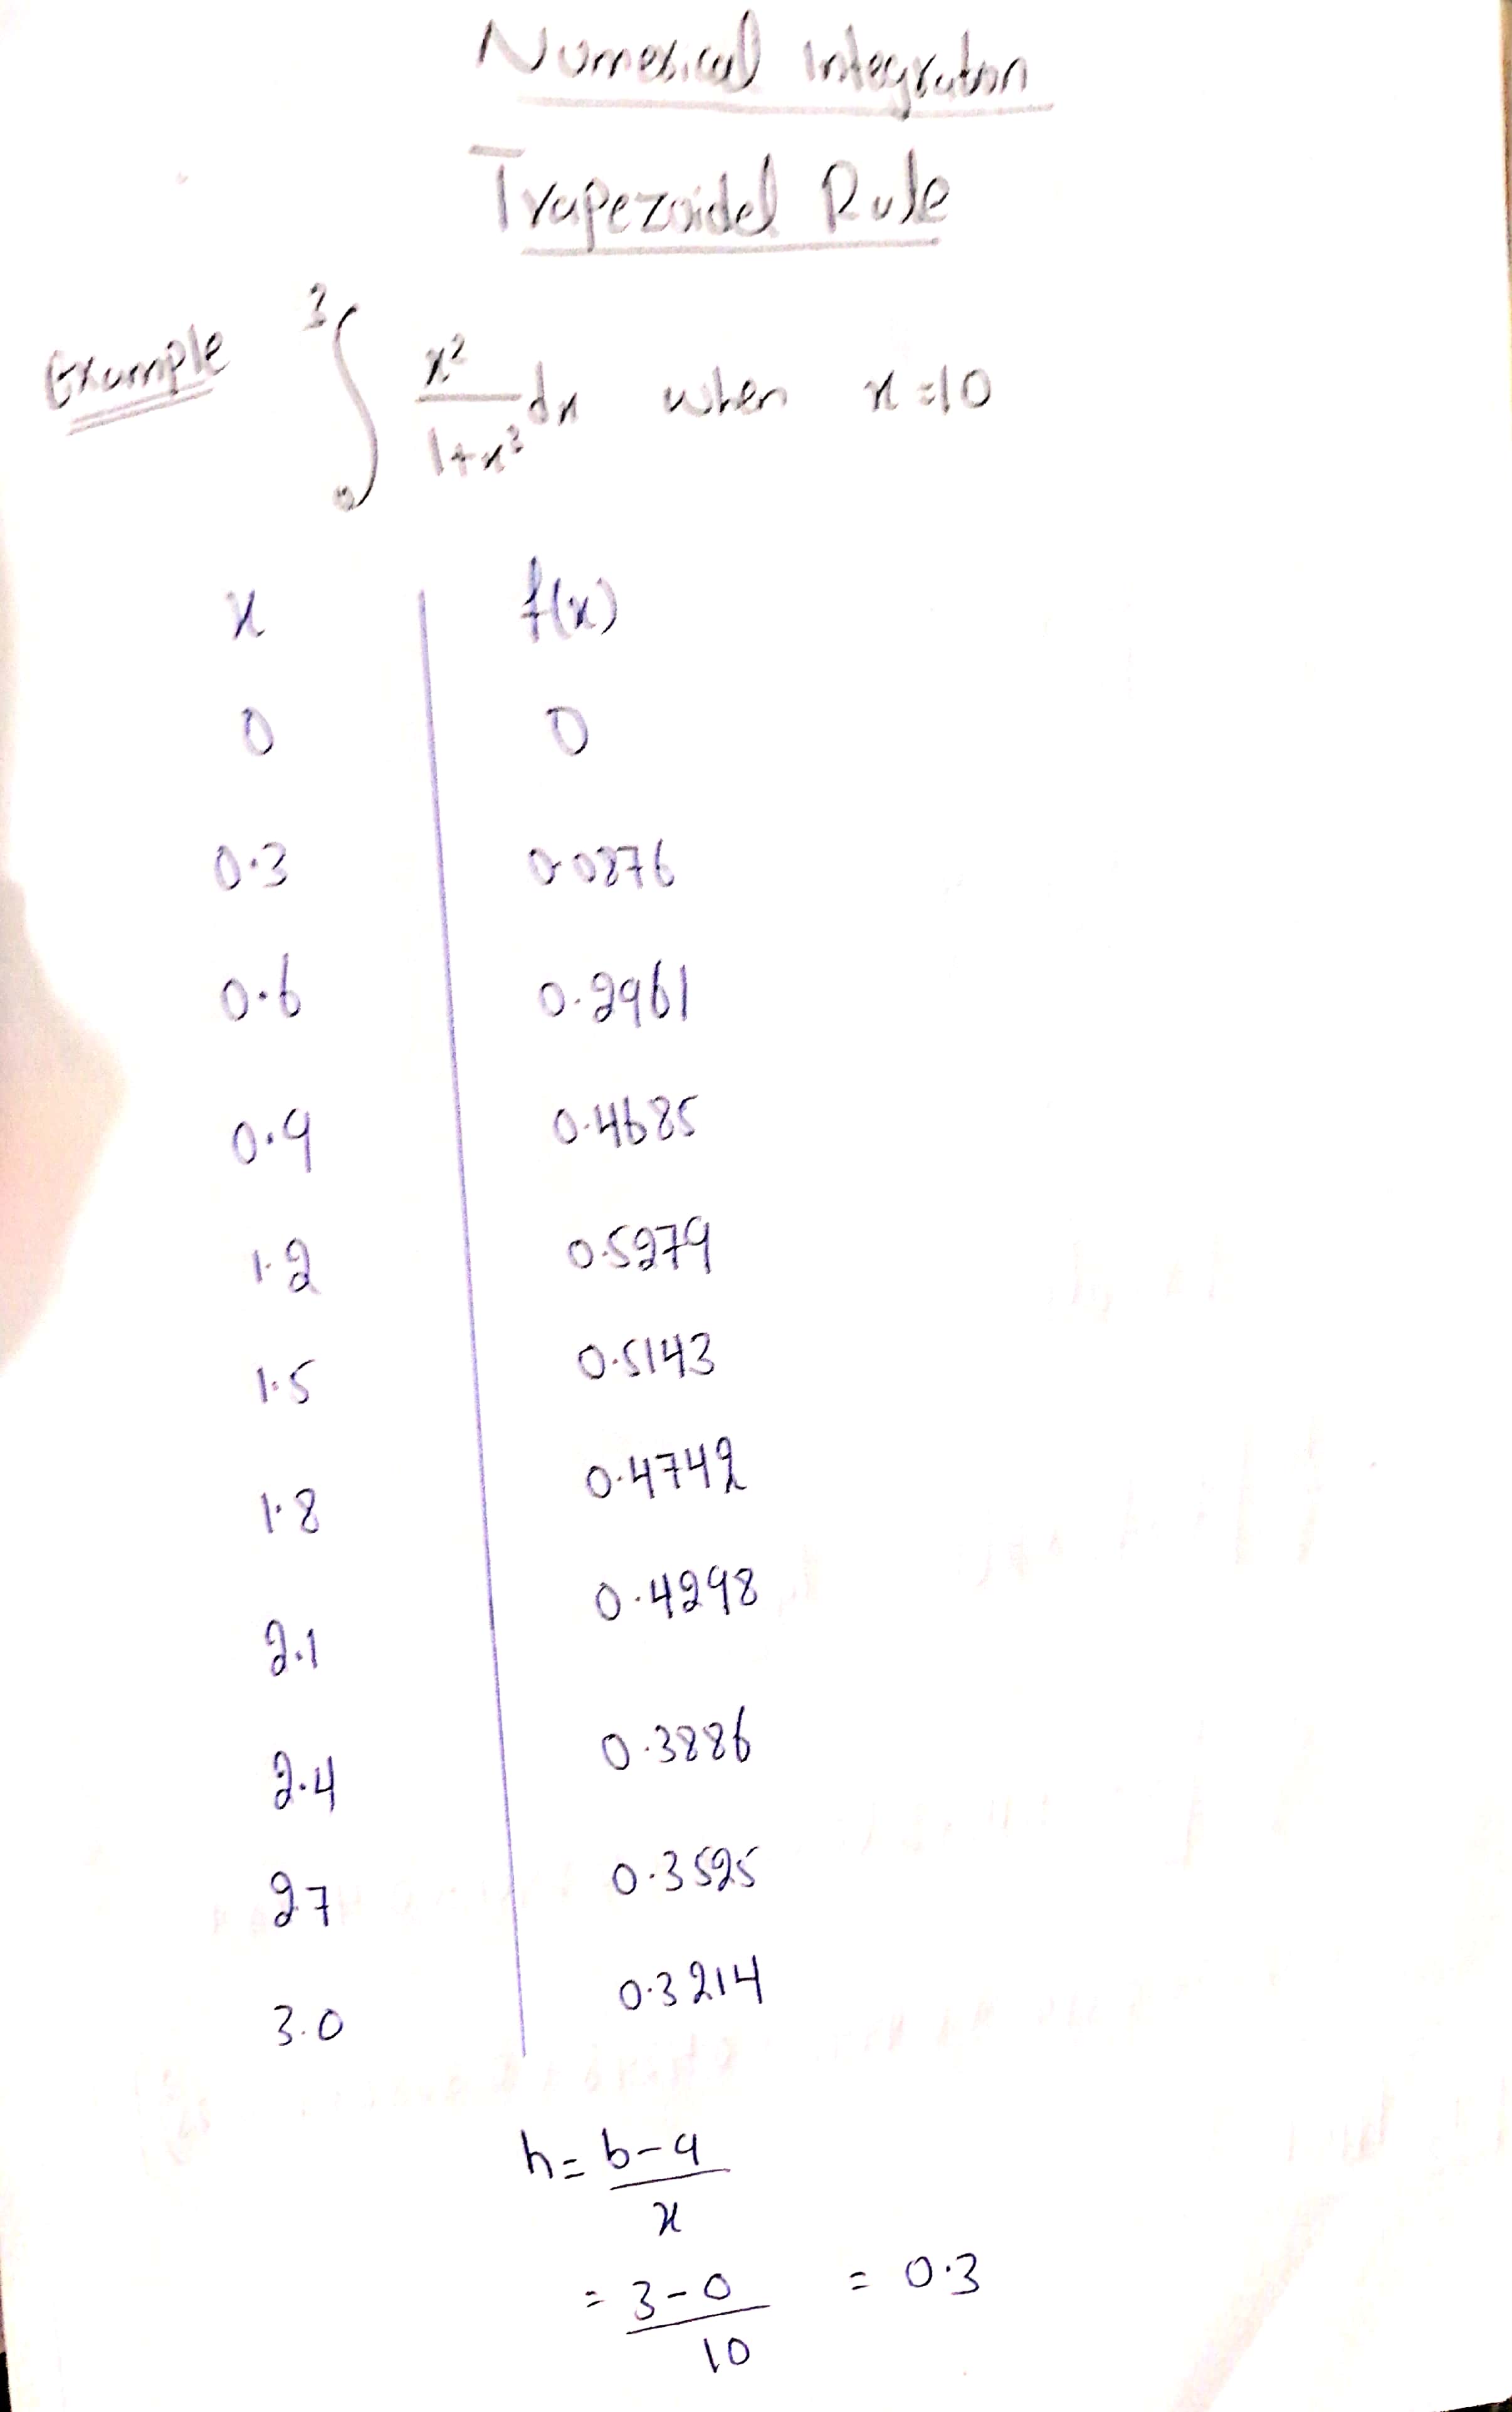 Numerical Integration
Trapezoidel Rule
Example ∫₀³ x²/(1+x³) dx when x=10
x f(x)
0 0
0.3 0.0876
0.6 0.2961
0.9 0.4685
1.2 0.5279
1.5 0.5143
1.8 0.4742
2.1 0.4298
2.4 0.3886
2.7 0.3525
3.0 0.3214
h = (b-a)/x
= (3-0)/10 = 0.3